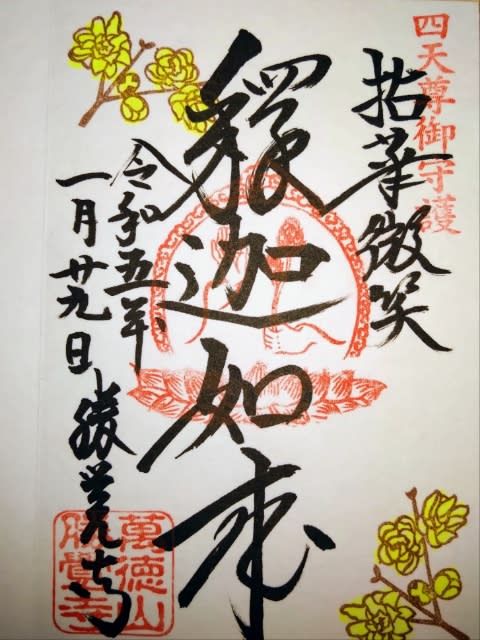 四天尊御守護
拈華微笑
釋迦如来
令和五年
一月廿九日
勝覚寺
萬徳山
勝覺寺